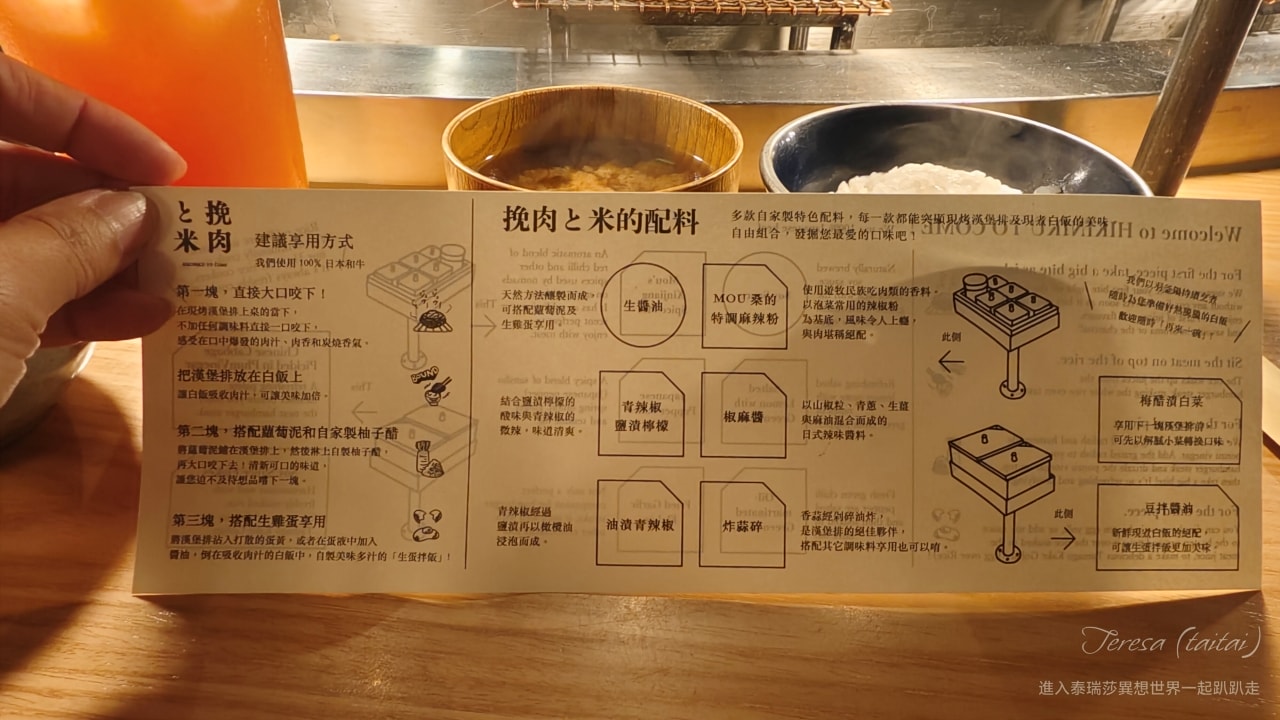 挽肉
と米
HIKINIKU TO COME
建議享用方式
我們使用 100% 日本和牛
第一塊，直接大口咬下！
在現烤漢堡排上桌的當下，
不加任何調味料直接一口咬下，
感受在口中爆發的肉汁、肉香和炭燒香氣。
把漢堡排放在白飯上
讓白飯吸收肉汁，可讓美味加倍。
第二塊，搭配蘿蔔泥和自家製柚子醋
將蘿蔔泥鋪在漢堡排上，然後淋上自製柚子醋，
再大口咬下去！清新可口的味道，
讓您迫不及待想品嚐下一塊。
第三塊，搭配生雞蛋享用
將漢堡排沾入打散的蛋黃，或者在蛋液中加入
醬油，倒在吸收肉汁的白飯中，自製美味多汁的「生蛋拌飯」！
挽肉と米的配料
多款自家製特色配料，每一款都能突顯現烤漢堡排及現煮白飯的美味
自由組合，發掘您最愛的口味吧！
天然方法釀製而成，
可搭配蘿蔔泥及
生雞蛋享用
生醬油
MOU 桑的
特調麻辣粉
使用遊牧民族吃肉類的香料，
以泡菜常用的辣椒粉
為基底，風味令人上癮，
與肉堪稱絕配。
結合鹽漬檸檬的
酸味與青辣椒的
微辣，味道清爽。
青辣椒
鹽漬檸檬
椒麻醬
以山椒粒、青蔥、生薑
與麻油混合而成的
日式辣味醬料。
青辣椒經過
鹽漬再以橄欖油
浸泡而成。
油漬青辣椒
炸蒜碎
香蒜經剁碎油炸，
是漢堡排的絕佳夥伴，
搭配其它調味料享用也可以唷。
此側
我們以羽釜隨時續烹煮
隨時為您準備好熱騰騰的白飯
歡迎隨時「再來一碗」！
梅醋漬白菜
享用下一塊漢堡排前，
可先以解膩小菜轉換口味。
此側
豆拌醬油
新鮮現煮白飯的絕配，
可讓生蛋拌飯更加美味。
Welcome to HIKINIKU TO COME
For the first piece, take a big bite
Sit the meat on top of the rice.
Teresa (taitai)
進入泰瑞莎異想世界一起趴趴走